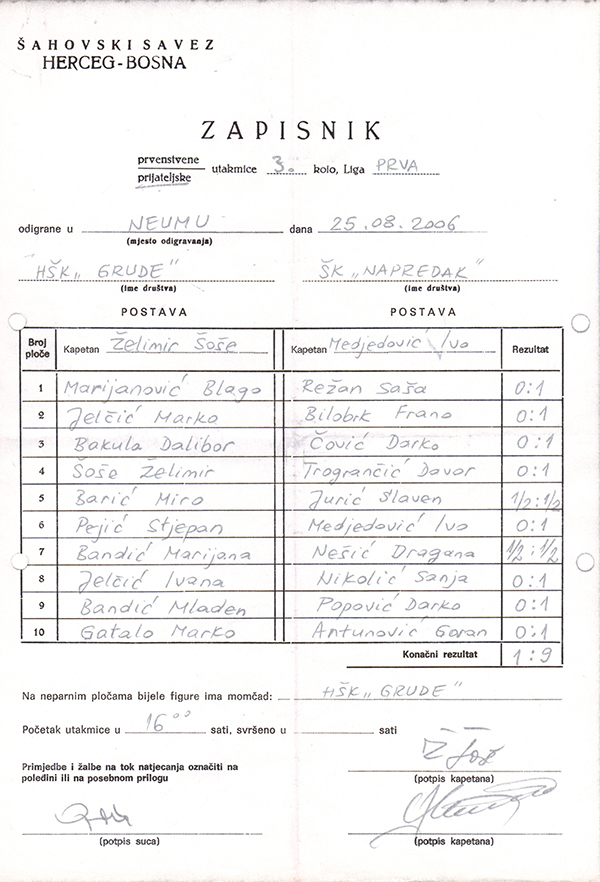 ŠAHOVSKI SAVEZ
HERCEG-BOSNA
ZAPISNIK
prvenstvene
prijateljske
utakmice 3. kolo, Liga PRVA
odigrane u NEUMU dana 25.08.2006
(mjesto odigravanja)
HŠK „GRUDE" ŠK „NAPREDAK"
(ime društva) (ime društva)
POSTAVA POSTAVA
Broj ploče Kapetan Želimir Šoše Kapetan Medjedović Ivo Rezultat
1 Marijanović Blago Režan Saša 0:1
2 Jelčić Marko Bilobrk Frano 0:1
3 Bakula Dalibor Čović Darko 0:1
4 Šoše Želimir Trogrančić Davor 0:1
5 Barić Miro Jurić Slaven 1/2:1/2
6 Pejić Stjepan Medjedović Ivo 0:1
7 Bandić Marijana Nešić Dragana 1/2:1/2
8 Jelčić Ivana Nikolić Sanja 0:1
9 Bandić Mladen Popović Darko 0:1
10 Gatalo Marko Antunović Goran 0:1
Konačni rezultat 1:9
Na neparnim pločama bijele figure ima momčad: HŠK „GRUDE"
Početak utakmice u 16⁰⁰ sati, svršeno u sati
Primjedbe i žalbe na tok natjecanja označiti na
poledini ili na posebnom prilogu
(potpis kapetana)
(potpis suca) (potpis kapetana)